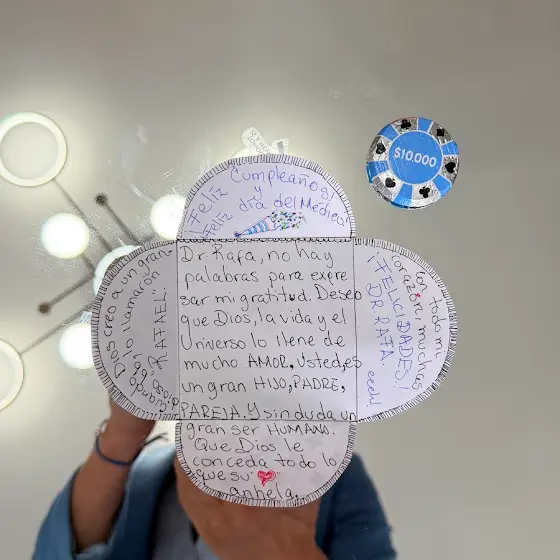 Feliz Cumpleaños!
y
Feliz día del Médico!
Dr Rafa, no hay
palabras para expre
sar mi gratitud. Deseo
que Dios, la vida y el
Universo lo llene de
mucho AMOR, Usted, es
un gran HIJO, PADRE,
PAREJA. Y sin duda un
gran ser HUMANO.
Que Dios le
conceda todo lo
que su
anhela.
Cuando Dios creo a un gran
lo llamarón
"RAFAEL".
Con todo mi
corazón, muchas
¡FELICIDADES!
DR RAFA.
eeeh!
$10.000